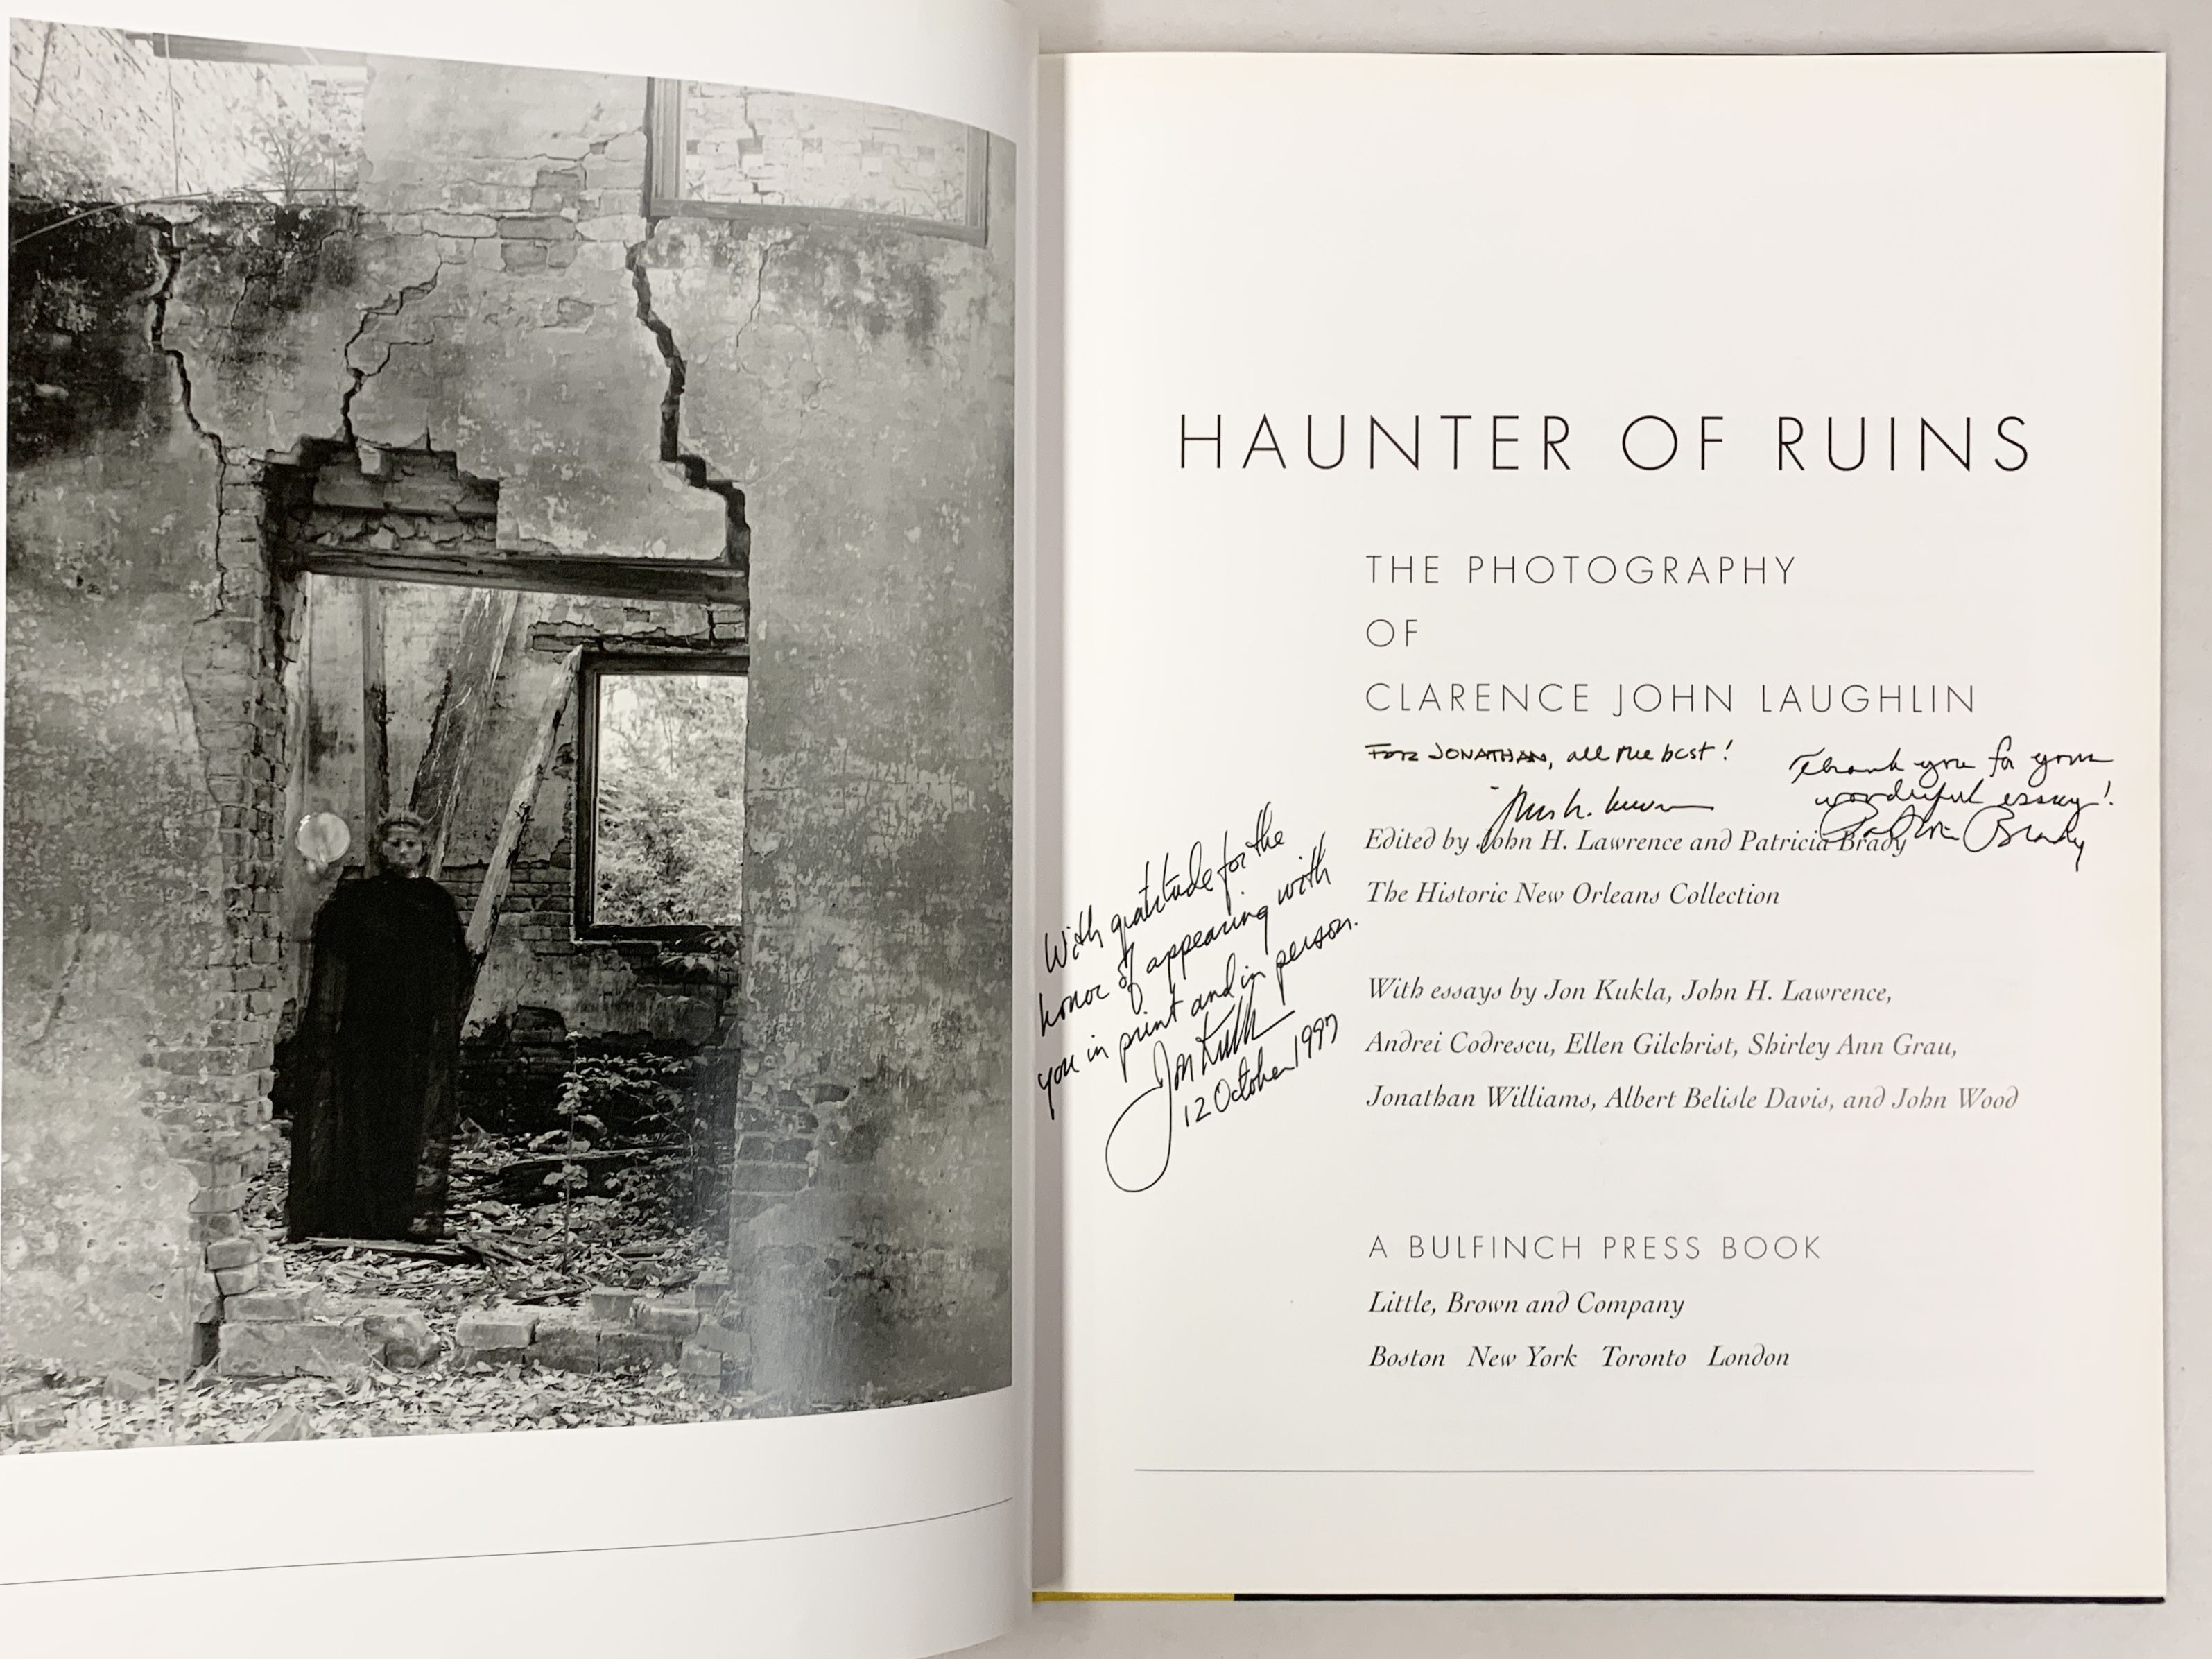 HAUNTER OF RUINS
THE PHOTOGRAPHY
OF
CLARENCE JOHN LAUGHLIN
FOR JONATHAN, all the best!
Thank you for your
wonderful essay!
Patricia Brady
Edited by John H. Lawrence and Patricia Brady
The Historic New Orleans Collection
With gratitude for the
honor of appearing with
you in print and in person.
Jon Kukla
12 October 1997
With essays by Jon Kukla, John H. Lawrence,
Andrei Codrescu, Ellen Gilchrist, Shirley Ann Grau,
Jonathan Williams, Albert Belisle Davis, and John Wood
A BULFINCH PRESS BOOK
Little, Brown and Company
Boston New York Toronto London